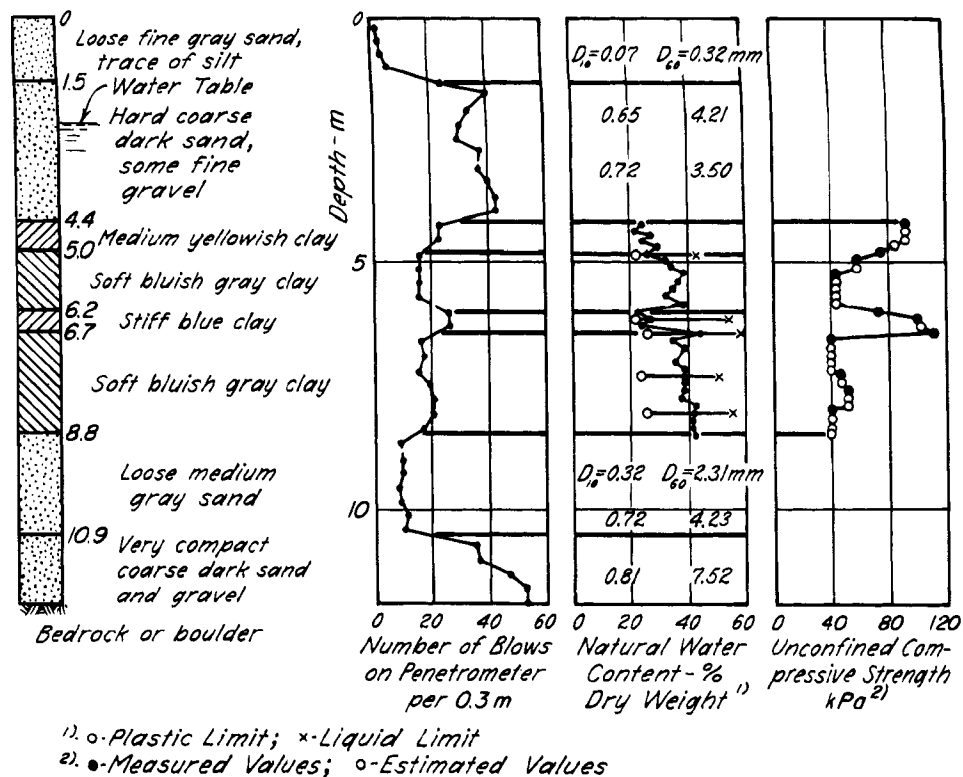 0
Loose fine gray sand,
trace of silt
1.5
Water Table
Hard coarse
dark sand,
some fine
gravel
4.4
Medium yellowish clay
5.0
Soft bluish gray clay
6.2
Stiff blue clay
6.7
Soft bluish gray clay
8.8
Loose medium
gray sand
10.9
Very compact
coarse dark sand
and gravel
Bedrock or boulder
Depth-m
0
5
10
0 20 40 60
Number of Blows
on Penetrometer
per 0.3 m
D10=0.07 D60=0.32mm
0.65 4.21
0.72 3.50
D10=0.32 D60=2.31mm
0.72 4.23
0.81 7.52
0 20 40 60
Natural Water
Content-%
Dry Weight 1)
0 40 80 120
Unconfined Com-
pressive Strength
kPa2)
1). o-Plastic Limit; x-Liquid Limit
2). ●-Measured Values; o-Estimated Values